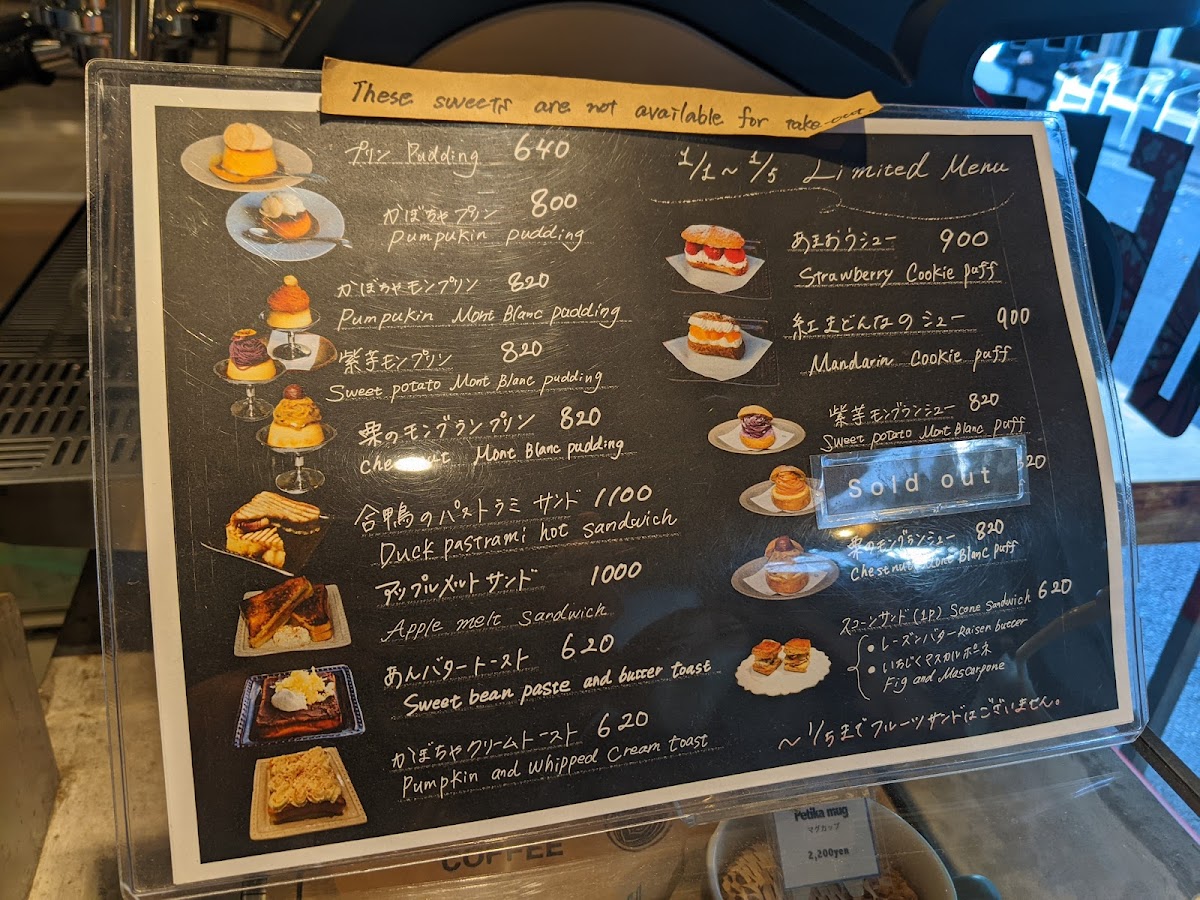 These sweets are not available for take-out
プリン Pudding 640
かぼちゃプリン 800
Pumpukin pudding
かぼちゃモンプリン 820
Pumpukin Mont Blanc pudding
紫芋モンプリン 820
Sweet potato Mont Blanc pudding
栗のモンブランプリン 820
chestnut Mont Blanc pudding
合鴨のパストラミサンド 1100
Duck pastrami hot sandwich
アップルメルトサンド 1000
Apple melt sandwich
あんバタートースト 620
Sweet bean paste and butter toast
かぼちゃクリームトースト 620
Pumpkin and whipped cream toast
1/1~1/5 Limited Menu
あまおうシュー 900
Strawberry Cookie puff
紅まどんなのシュー 900
Mandarin Cookie puff
紫芋モンブランシュー 820
Sweet potato Mont Blanc puff
Sold out
栗のモンブランシュー 820
Chestnut Mont Blanc puff
スコーンサンド (1P) Scone Sandwich 620
• レーズンバター Raisen butter
• いちじくマスカルポーネ
Fig and Mascarpone
~1/5までフルーツサンドはございません。
COFFEE
Petika mug
マグカップ
2,200yen